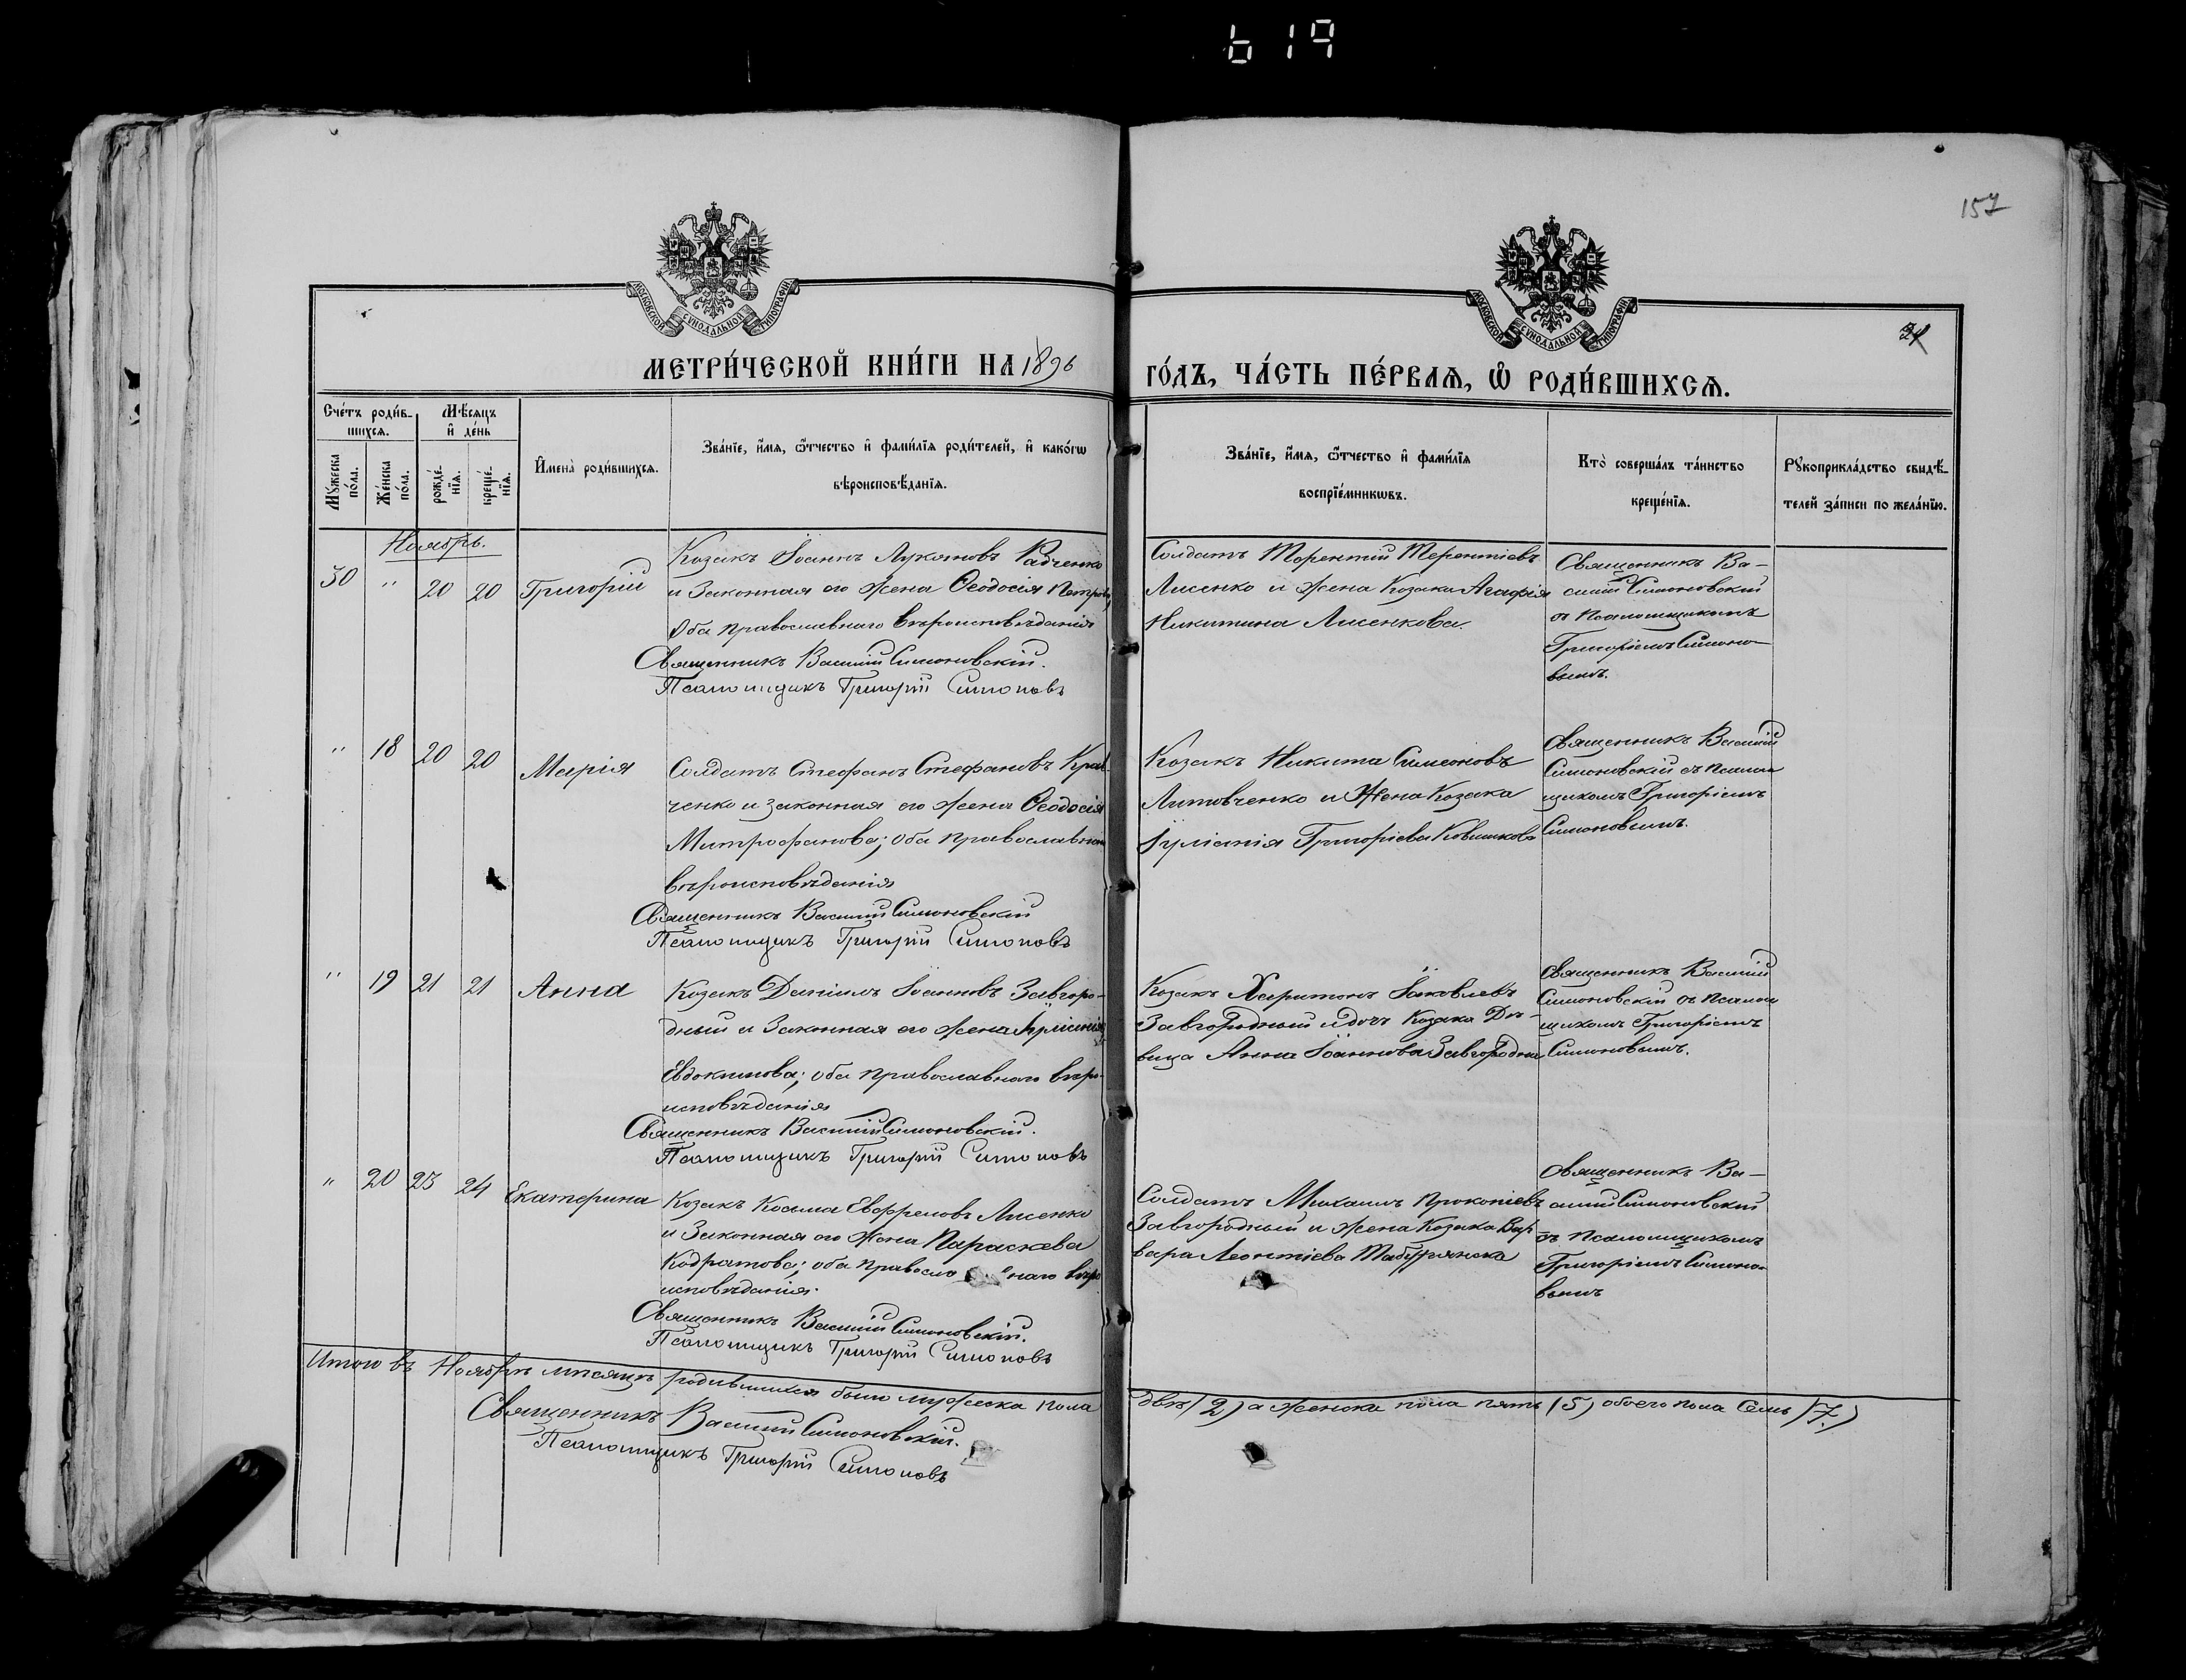 619
157
МОСКОВСКОЙ СУНОДАЛЬНОЙ ТИПОГРАФІИ
МОСКОВСКОЙ СУНОДАЛЬНОЙ ТИПОГРАФІИ
МЕТРИ́ЧЕСКОЙ КНИ́ГИ НА 1896 ГО́ДЪ, ЧА́СТЬ ПЕ́РВАѦ, Ѡ РОДИ́ВШИХСѦ.
Сче́тъ роди́в-
шихсѧ.
Мѣ́сѧцъ
и҆ де́нь
Мꙋ́жеска
по́ла.
Же́нска
по́ла.
рожде́-
нїѧ.
креще́-
нїѧ.
И҆мена̀ роди́вшихсѧ.
Зва́нїе, и҆́мѧ, ѻ҆́тчество и҆ фами́лїѧ роди́телей, и҆ како́гѡ
вѣроисповѣ́данїѧ.
Зва́нїе, и҆́мѧ, ѻ҆́тчество и҆ фами́лїѧ
воспрїе́мникѡвъ.
Кто̀ соверша́лъ та́инство
креще́нїѧ.
Рꙋкоприкла́дство свидѣ́-
телей за́писи по жела́нїю.
Ноябрь.
30 " 20 20 Григорій
Козакъ Іоаннъ Лукяновъ Радченко
и Законная его жена Ѳеодосія Петрова,
Оба православнаго вѣроисповѣданія
Священникъ Василій Симоновскій.
Псаломщикъ Григорій Симоновъ
Солдатъ Терентій Терентіевъ
Лисенко и жена Козака Агафія
Никитина Лисенкова.
Священникъ Ва-
силій Симоновскій
съ Псаломщикомъ
Григоріемъ Симоно-
вымъ.
" 18 20 20 Марія
Солдатъ Стефанъ Стефановъ Крав-
ченко и законная его жена Ѳеодосія
Митрофанова; оба православнаго
вѣроисповѣданія
Священникъ Василій Симоновскій
Псаломщикъ Григорій Симоновъ
Козакъ Никита Симеоновъ
Литовченко и Жена Козака
Іуліанія Григоріева
Священникъ Василій
Симоновскій съ псалом
щикомъ Григоріемъ
Симоновымъ.
" 19 21 21 Анна
Козакъ Даніилъ Іоанновъ Завгоро-
дный и Законная его жена Іуліанія
Евдокимова; оба православнаго вѣро-
исповѣданія
Священникъ Василій Симоновскій.
Псаломщикъ Григорій Симоновъ
Козакъ Харитонъ Іаковлевъ
Завгородный и дочь Козака Дѣ-
вица Анна Іоаннова Завгородня
Священникъ Василій
Симоновскій съ псалом
щикомъ Григоріемъ
Симоновымъ.
" 20 23 24 Екатерина
Козакъ Косма Евфремовъ Лисенко
и Законная его жена Параскева
Кодратова; оба православнаго вѣро
исповѣданія.
Священникъ Василій Симоновскій.
Псаломщикъ Григорій Симоновъ
Солдатъ Михаилъ Прокопіевъ
Завгородный и жена Козака Вар-
вара Леонтіева
Священникъ Ва-
силій Симоновскій
съ Псаломщикомъ
Григоріемъ Симоно-
вымъ
Итого въ Ноябрѣ мѣсяцѣ родившихся было мужеска пола двѣ (2) а женска пола пять (5) обоего пола Семь (7.)
Священникъ Василій Симоновскій.
Псаломщикъ Григорій Симоновъ